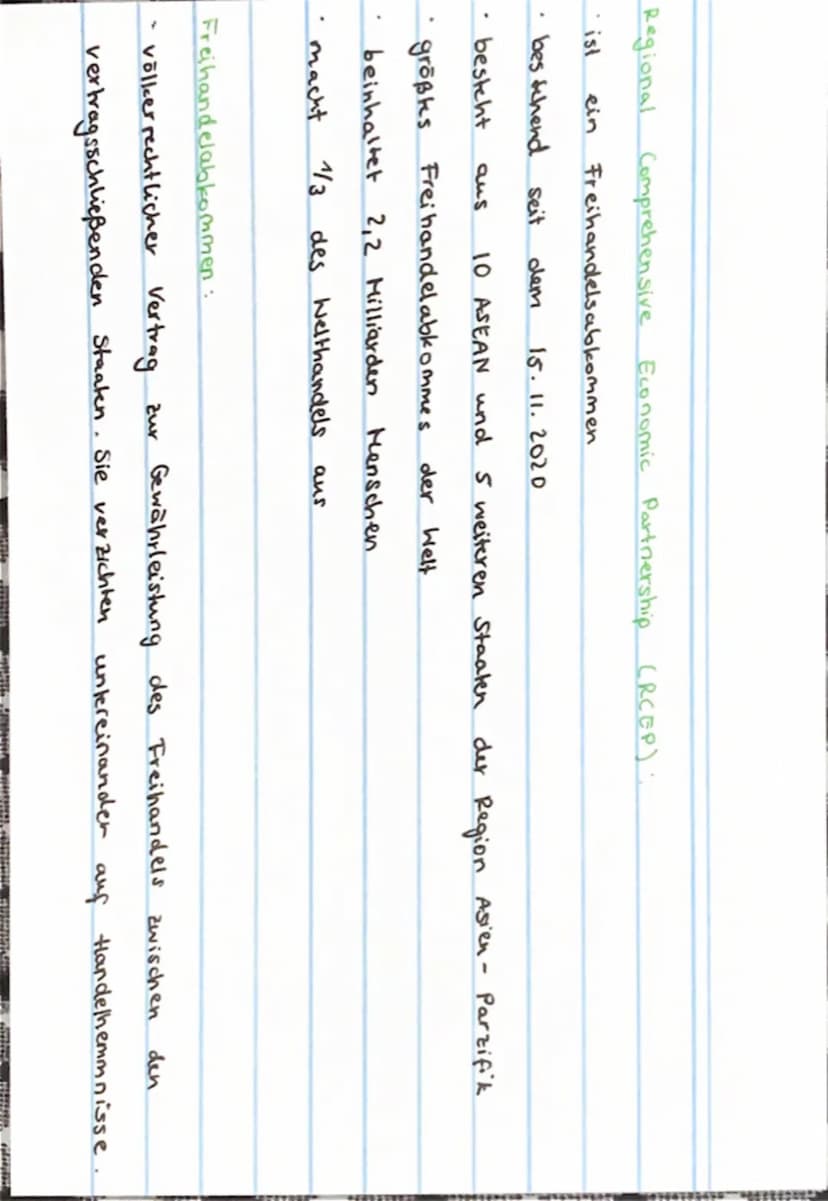 Regional Comprehensive Economic Partnership (RCEP):
· ist ein Freihandelsabkommen
· bestehend seit dem 15.11.2020
· besteht aus 10 ASEAN und 5 weiteren Staaten der Region Asien-Parzifik
· größtes Freihandelabkommes der Welt
· beinhaltet 2,2 Milliarden Menschen
· macht 1/3 des Welthandels aus
Freihandelabkommen:
- völkerrechtlicher Vertrag zur Gewährleistung des Freihandels zwischen den
vertragsschließenden Staaten. Sie verzichten untereinander auf Handelhemmnisse.